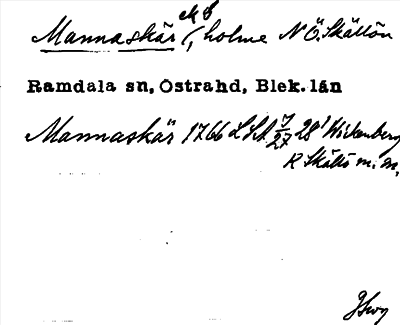 Mannaskär, holme N Ö. Skältön
Ramdala sn, Östrahd, Blek.län
Mannaskär 1766 LSA 7/27 28¹ Wickenberg
R Skältö m. m.